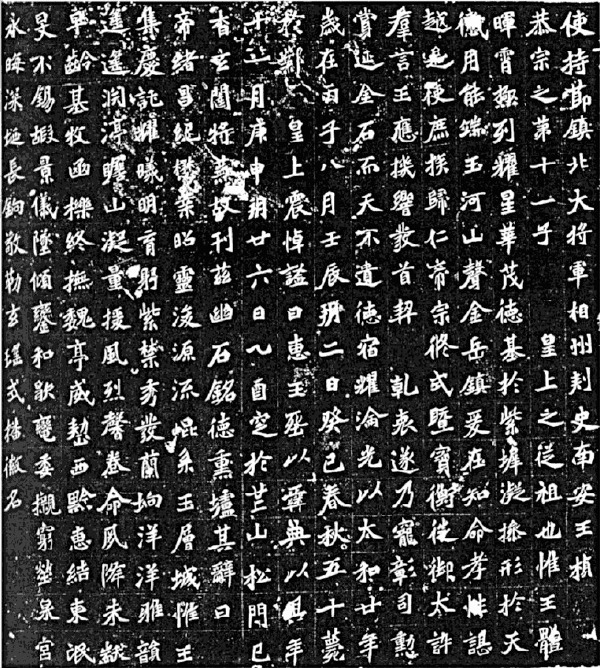 使持節鎮北大將軍相州刺史南安王楨
恭宗之第十一子　皇上之從祖也惟王體
暉霄極列耀星華茂德基於紫墀凝操形於天
儀用能端玉河山聲金岳鎮爰在知命孝性諶
越是使庶族歸仁帝宗攸式暨寶衡徙御太訏
羣言王應機響發首契　乾衷遂乃寵彰司勳
賞延金石而天不遺德宿耀淪光以太和廿年
歲在丙子八月壬辰朔二日癸巳春秋五十薨
於鄴　皇上震悼諡曰惠王葬以彝典以其年
十一月庚申朔廿六日乙酉窆於芒山松門已
杳玄闥將蕪故刊茲幽石銘德熏壚其辭曰
帝緒昌紀懋業昭靈浚源流崐系玉層城惟王
集慶託耀曦明育躬紫禁秀發蘭坰洋洋雅韻
遙遙淵渟瞻山凝量援風烈馨卷命夙降未黻
丱齡基牧函櫟終撫魏亭威整西黔惠結東氓
旻不錫嘏景儀墜傾鑾和歇轡委櫬窮塋泉宮
永晦深埏長鈎敬勒玄瑤式播徽名